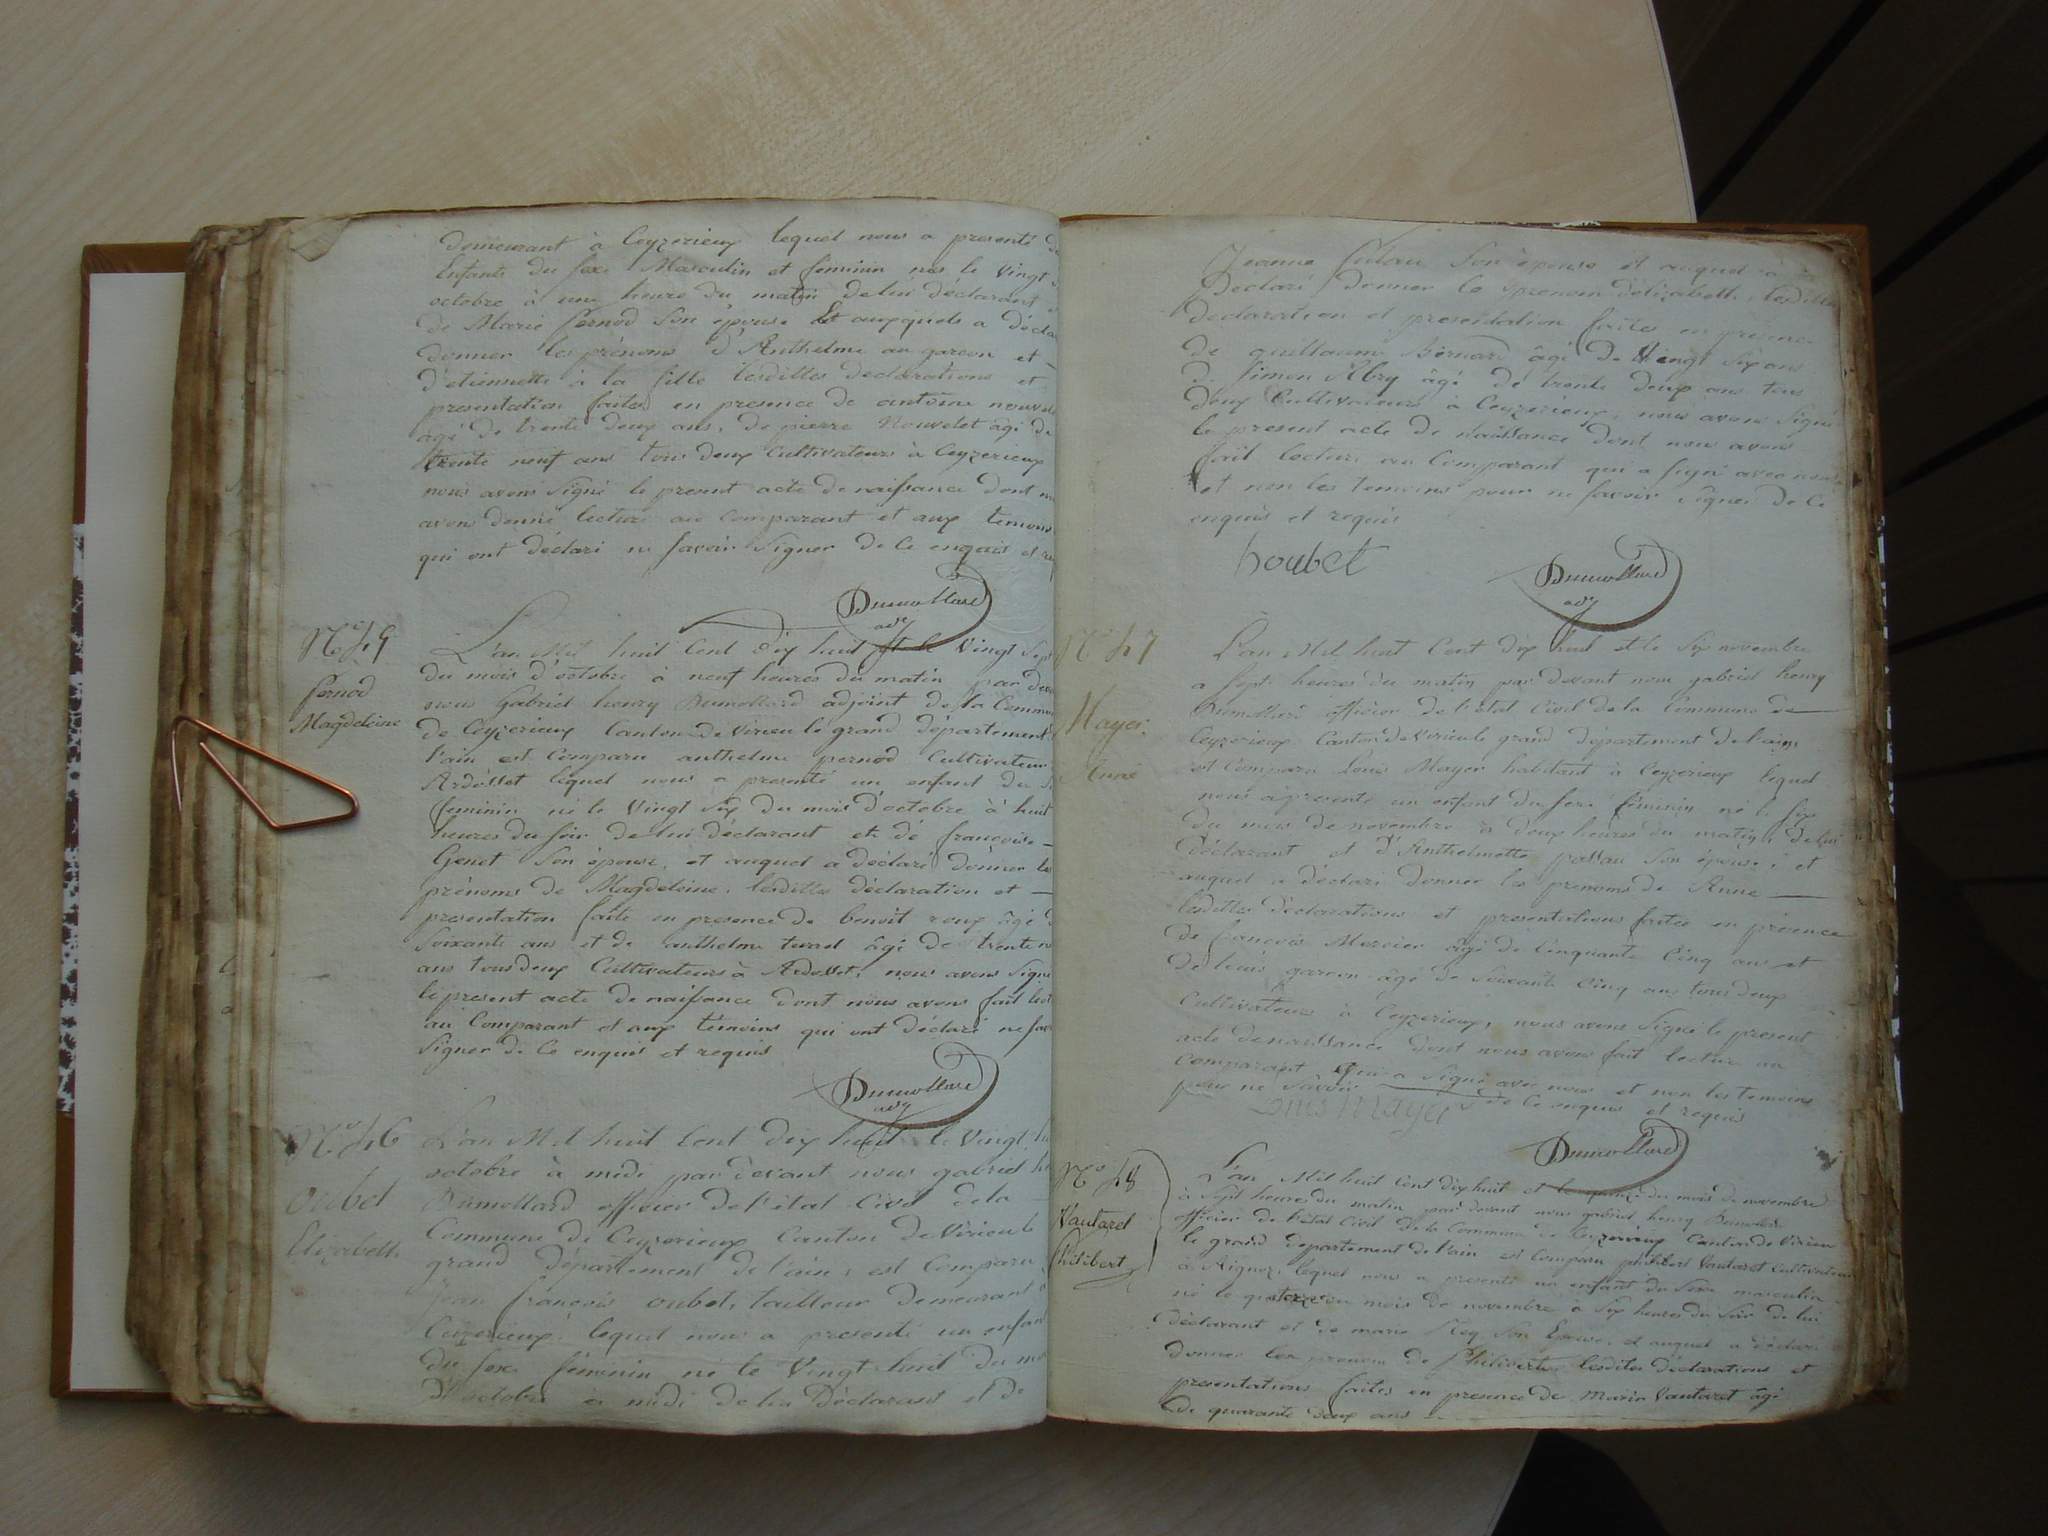 demeurant à Ceyzerieux lequel nous a presenté
Enfants du sexe Masculin et féminin nés le Vingt
octobre à une heure du matin de lui déclarant
de Marie pernod Son épouse Et auxquels a décla
donner les prénoms d'Anthelme au garcon et
d'etiennette à la fille lesdittes declarations et
presentation faites en presence de antoine nouvel
âgé De trente Deux ans, de pierre Nouvelet âgé De
trente neuf ans tous deux Cultivateurs à Ceyzerieux
nous avons Signé le present acte de naissance dont
avons donné lecture au Comparant et aux temoins
qui ont déclaré ne savoir Signer De Ce enquis et
Dumollard
adj
N° 45
pernod
Magdeleine
L'an Mil huit Cent dix huit et le Vingt Sept
du mois d'octobre à neuf heures du matin par dev
nous Gabriel henry Dumollard adjoint de la Commu
de Ceyzerieux Canton de Virieu le grand département
l'ain est Comparu anthelme pernod Cultivateur
Ardosset lequel nous a presenté un enfant du
féminin né le Vingt Six du mois D'octobre à huit
heures du soir de lui déclarant et de françoise
Genet Son épouse, et auquel a déclaré donner les
prénoms de Magdeleine, lesdittes déclaration et
presentation faite en presence de benoit roux âgé
Soixante ans et de anthelme âgé de trente
ans tous deux Cultivateurs à Ardosset, nous avons Signé
le present acte de naissance dont nous avons fait lect
au Comparant et aux témoins qui ont déclaré ne sav
Signer de Ce enquis et requis
Dumollard
adj
N° 46
oubet
Elizabeth
L'an Mil huit Cent Dix huit le Vingt
octobre à midi par devant nous gabriel
Dumollard officier de l'état Civil de la
Commune de Ceyzerieux Canton de Virieu le
grand département de l'ain, est Comparu
Jean françois oubet, tailleur demeurant
Ceyzerieux lequel nous a presenté un enfan
du sexe féminin né le Vingt huit du mo
D'octobre à midi de lui Déclarant et de
Jeanne Son épouse et auquel à
Déclaré Donner le prenom d'élizabeth, lesdittes
declaration et presentation faites en présence
de guillaume Bernard âgé De Vingt Six ans
D. Simon Abry âgé de trente deux ans tous
deux Cultivateurs à Ceyzerieux, nous avons Signé
le present acte de naissance dont nous avons
fait lecture au Comparant qui a signé avec nous
et non les temoins pour ne savoir signer de Ce
enquis et requis
houbet
Dumollard
adj
N° 47
Mayer
Anne
L'an Mil huit Cent dix huit et le Six novembre
a Sept heures du matin par devant nous gabriel henry
Dumollard officier de l'état Civil de la Commune de
Ceyzerieux Canton de Virieu le grand département de l'ain,
est Comparu Louis Mayer habitant à Ceyzerieux lequel
nous à présenté un enfant du sexe féminin né le Six
du mois de novembre à deux heures du matin, de lui
déclarant et d'Anthelmette passau Son épouse, et
auquel a déclaré donner les prenoms de Anne
lesdittes déclarations et présentations faites en présence
de françois Mercier âgé de Cinquante Cinq ans et
de louis garcon âgé de Soixante Cinq ans tous deux
Cultivateurs à Ceyzerieux, nous avons Signé le present
acte de naissance dont nous avons fait lecture au
Comparant qui a Signé avec nous et non les temoins
pour ne Savoir de Ce enquis et requis
Louis Mayer
Dumollard
N° 48
Vautaret
Philibert
L'an Mil huit Cent dix huit et le quinze du mois de novembre
à Sept heure du matin par devant nous gabriel henry Dumollard
officier de l'état Civil de la Commune de Ceyzerieux Canton de Virieu
le grand département de l'ain est Comparu philibert Vautaret Cultivateur
à Aignoz, lequel nous a presenté un enfant du Sexe masculin
né le quatorze du mois de novembre a Six heures du Soir de lui
déclarant et de marie Son Epouse, et auquel a déclaré
donner les prenom de Philibert, lesdites déclarations et
presentations faites en presence de Marin Vautaret âgé
de quarante deux ans